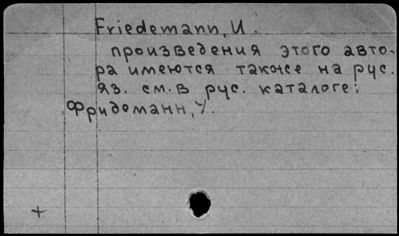 Friedemann, U.
произведения этого авто-
ра имеются также на рус.
яз. см. в рус. каталоге:
Фридеманн, У.
+